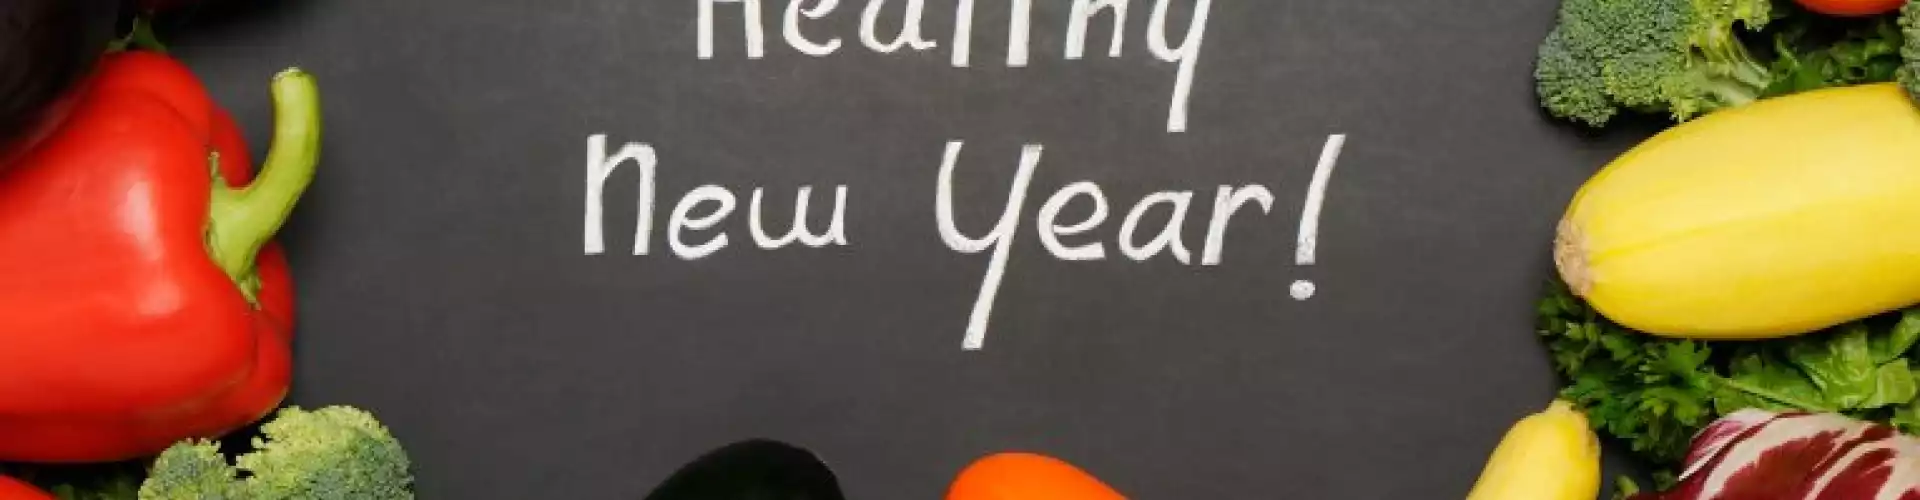 Healthy
New Year!